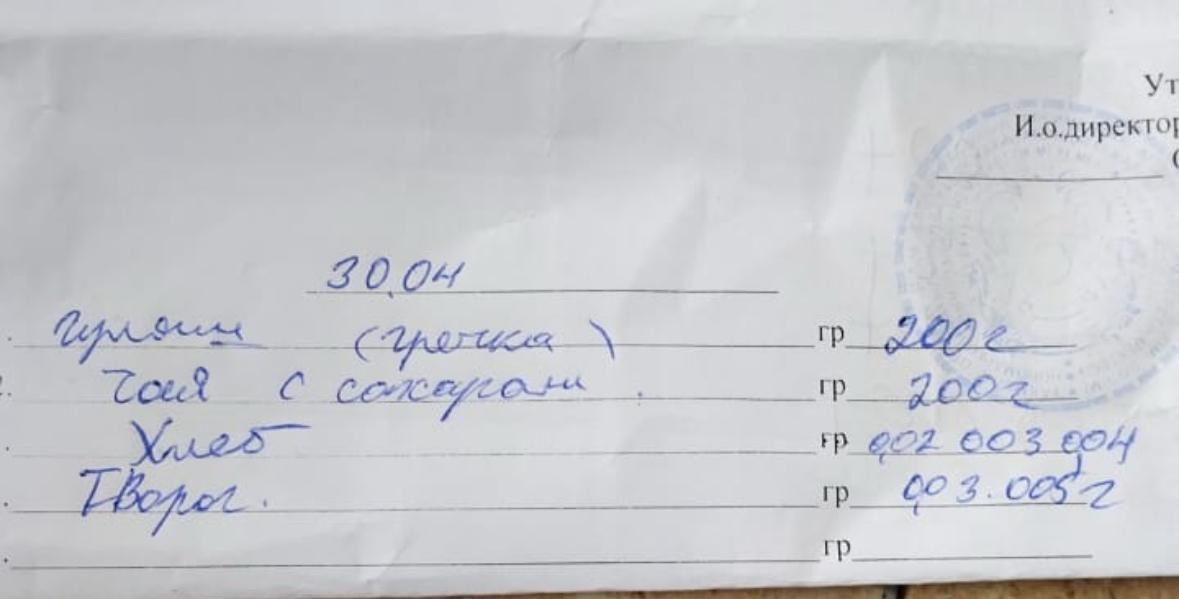 Ут
И.о.директор
30.04
гуляш (гречка) гр 200г
чай с сахаром. гр 200г
Хлеб гр 0,02 0,03 0,04
Творог. гр 0,03. 0,05г
гр